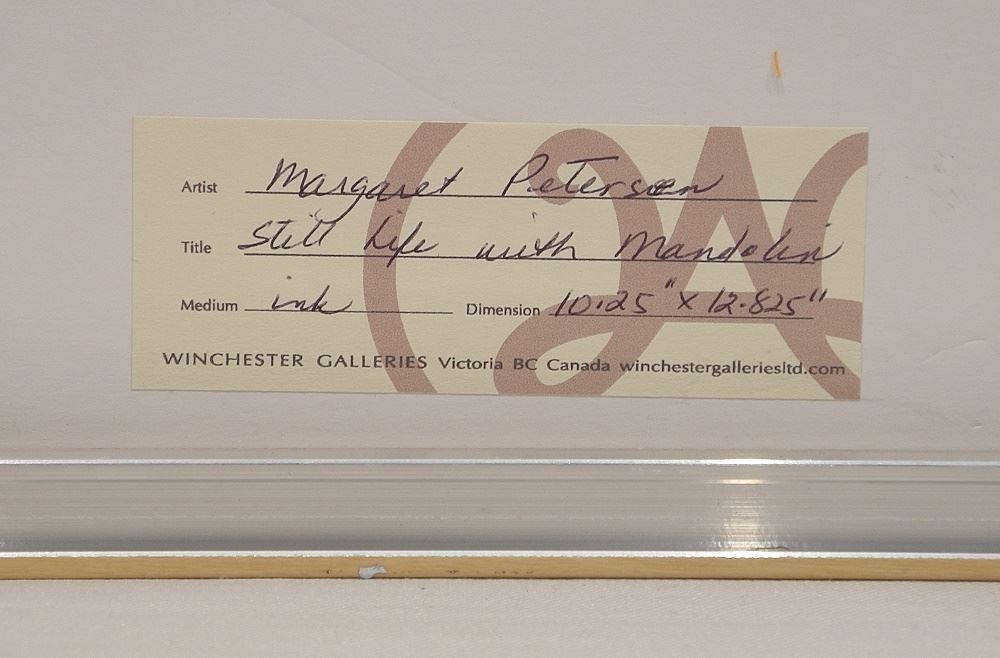 Artist Margaret Peterson
Title Still Life with Mandolin
Medium ink Dimension 10.25" X 12.825"
WINCHESTER GALLERIES Victoria BC Canada winchestergalleriesltd.com